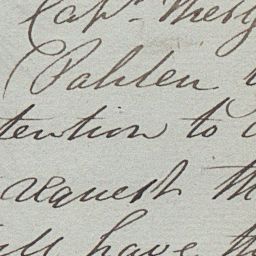 Capt. Mery
Pahlen
tention to
request th
ill have th